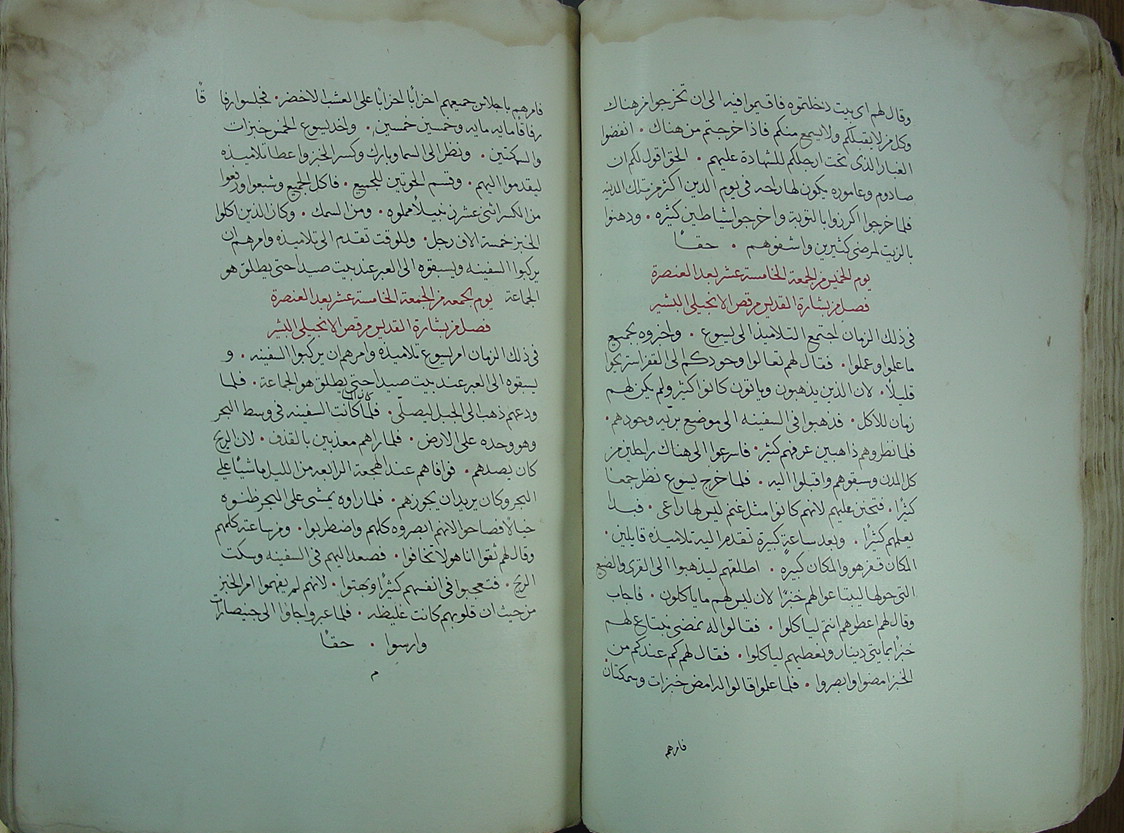 وقال لهم اى بيت دخلتموه فاقيموا فيه الى ان تخرجوا من هناك
وكل من لا يقبلكم ولا يسمع منكم فاذا خرجتم من هناك . انفضوا
الغبار الذى تحت ارجلكم للشهادة عليهم . الحق اقول لكم ان
صادوم وعاموره يكون لها راحه فى يوم الدين اكثر من تلك المدينه
فلما خرجوا اكرزوا بالتوبة واخرجوا شياطين كثيره . ودهنوا
بالزيت لمرضى كثيرين واشفوهم . حقًا
يوم الخميس من الجمعة الخامسة عشر بعد العنصرة
فصل من بشارة القديس مرقص الانجيلى البشير
فى ذلك الزمان اجتمع التلاميذ الى يسوع . واخبروه بجميع
ما علموا وعملوا . فقال لهم تعالوا وحودكم الى القفر لنستريحوا
قليلًا . لان الذين يذهبون وياتون كانوا كثير ولم يكن لهم
زمان للاكل . فذهبوا فى السفينه الى موضع بريه وحودهم .
فلما نظروهم ذاهبين عرفهم كثير . فاسرعوا الى هناك راجلين من
كل المدن وسبقوهم واقبلوا اليه . فلما خرج يسوع نظر جمعًا
كثيرًا . فتحنن عليهم لانهم كانوا مثل غنم ليس لها راعى . فبدا
يعلمهم كثيرًا . وبعد ساعةٍ كبيرة تقدم اليه تلاميذه قايلين .
المكان قفر هو والمكان كبيره . اطلقهم ليذهبوا الى القرى والضيع
التى حولها ليبتاعوا لهم خبزًا لان ليس لهم ما ياكلون . فاجاب
وقال لهم اعطوهم انتم لياكلوا . فقالوا له نمضى نبتاع لهم
خبزًا بمايتى دينار ونعطيهم لياكلوا . فقال لهم كم عندكم من
الخبز امضوا وابصروا . فلما علموا قالوا له خبزات وسمكتان
فامرهم
فامرهم باجلاس جميعهم احزابًا احزابًا على العشب الاخضر . فجلسوا رفاقًا
رفاقًا مايه مايه وخمسين خمسين . واخد يسوع الخمس خبزات
والسمكتين . ونظر الى السما وبارك وكسر الخبز واعطا تلاميذه
ليقدموا اليهم . وقسم الحوتين للجميع . فاكل الجميع وشبعوا ورفعوا
من الكسر اثنى عشر زنبيلًا مملوه . ومن السمك . وكان الذين اكلوا
الخبز خمسة الاف رجل . وللوقت تقدم الى تلاميذه وامرهم ان
يركبوا السفينه ويسبقوه الى العبر عند بيت صيدا حتى يطلق هو
الجماعة يوم الجمعه من الجمعة الخامسة عشر بعد العنصرة
فصل من بشارة القديس مرقص الانجيلى البشير
فى ذلك الزمان امر يسوع تلاميذه وامرهم ان يركبوا السفينه . و
يسبقوه الى العبر عند بيت صيدا حتى يطلق هو الجماعة . فلما
ودعهم ذهب الى الجبل ليصلّى . فلما كانت السفينه فى وسط البحر
وهو وحده على الارض . فلما راهم معذبين بالقذف . لان الريح
كان يصدهم . فوافاهم عند الهجعة الرابعه من الليل ماشيًا على
البحر وكان يريد ان يجوزهم . فلما راوه يمشى على البحر ظنوه
خيالًا فصاحوا لانهم ابصروه كلهم واضطربوا . ومن ساعته كلمهم
وقال لهم ثقوا انا هو لا تخافوا . فصعد اليهم فى السفينه وسكت
الريح . فتعجبوا فى انفسهم كثيرًا وبهتوا . لانهم لم يفهموا امر الخبز
من حيث ان قلوبهم كانت غليظه . فلما عبروا جاؤا الى جنيصارت
وارسوا . حقًا
م